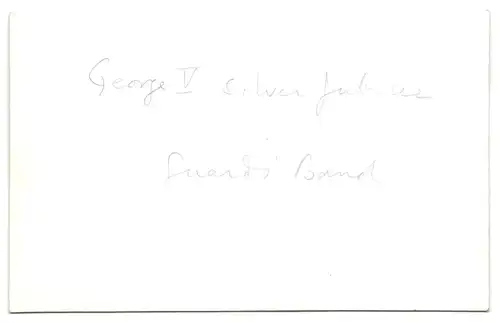 George V Silver Jubilee
Guards Band